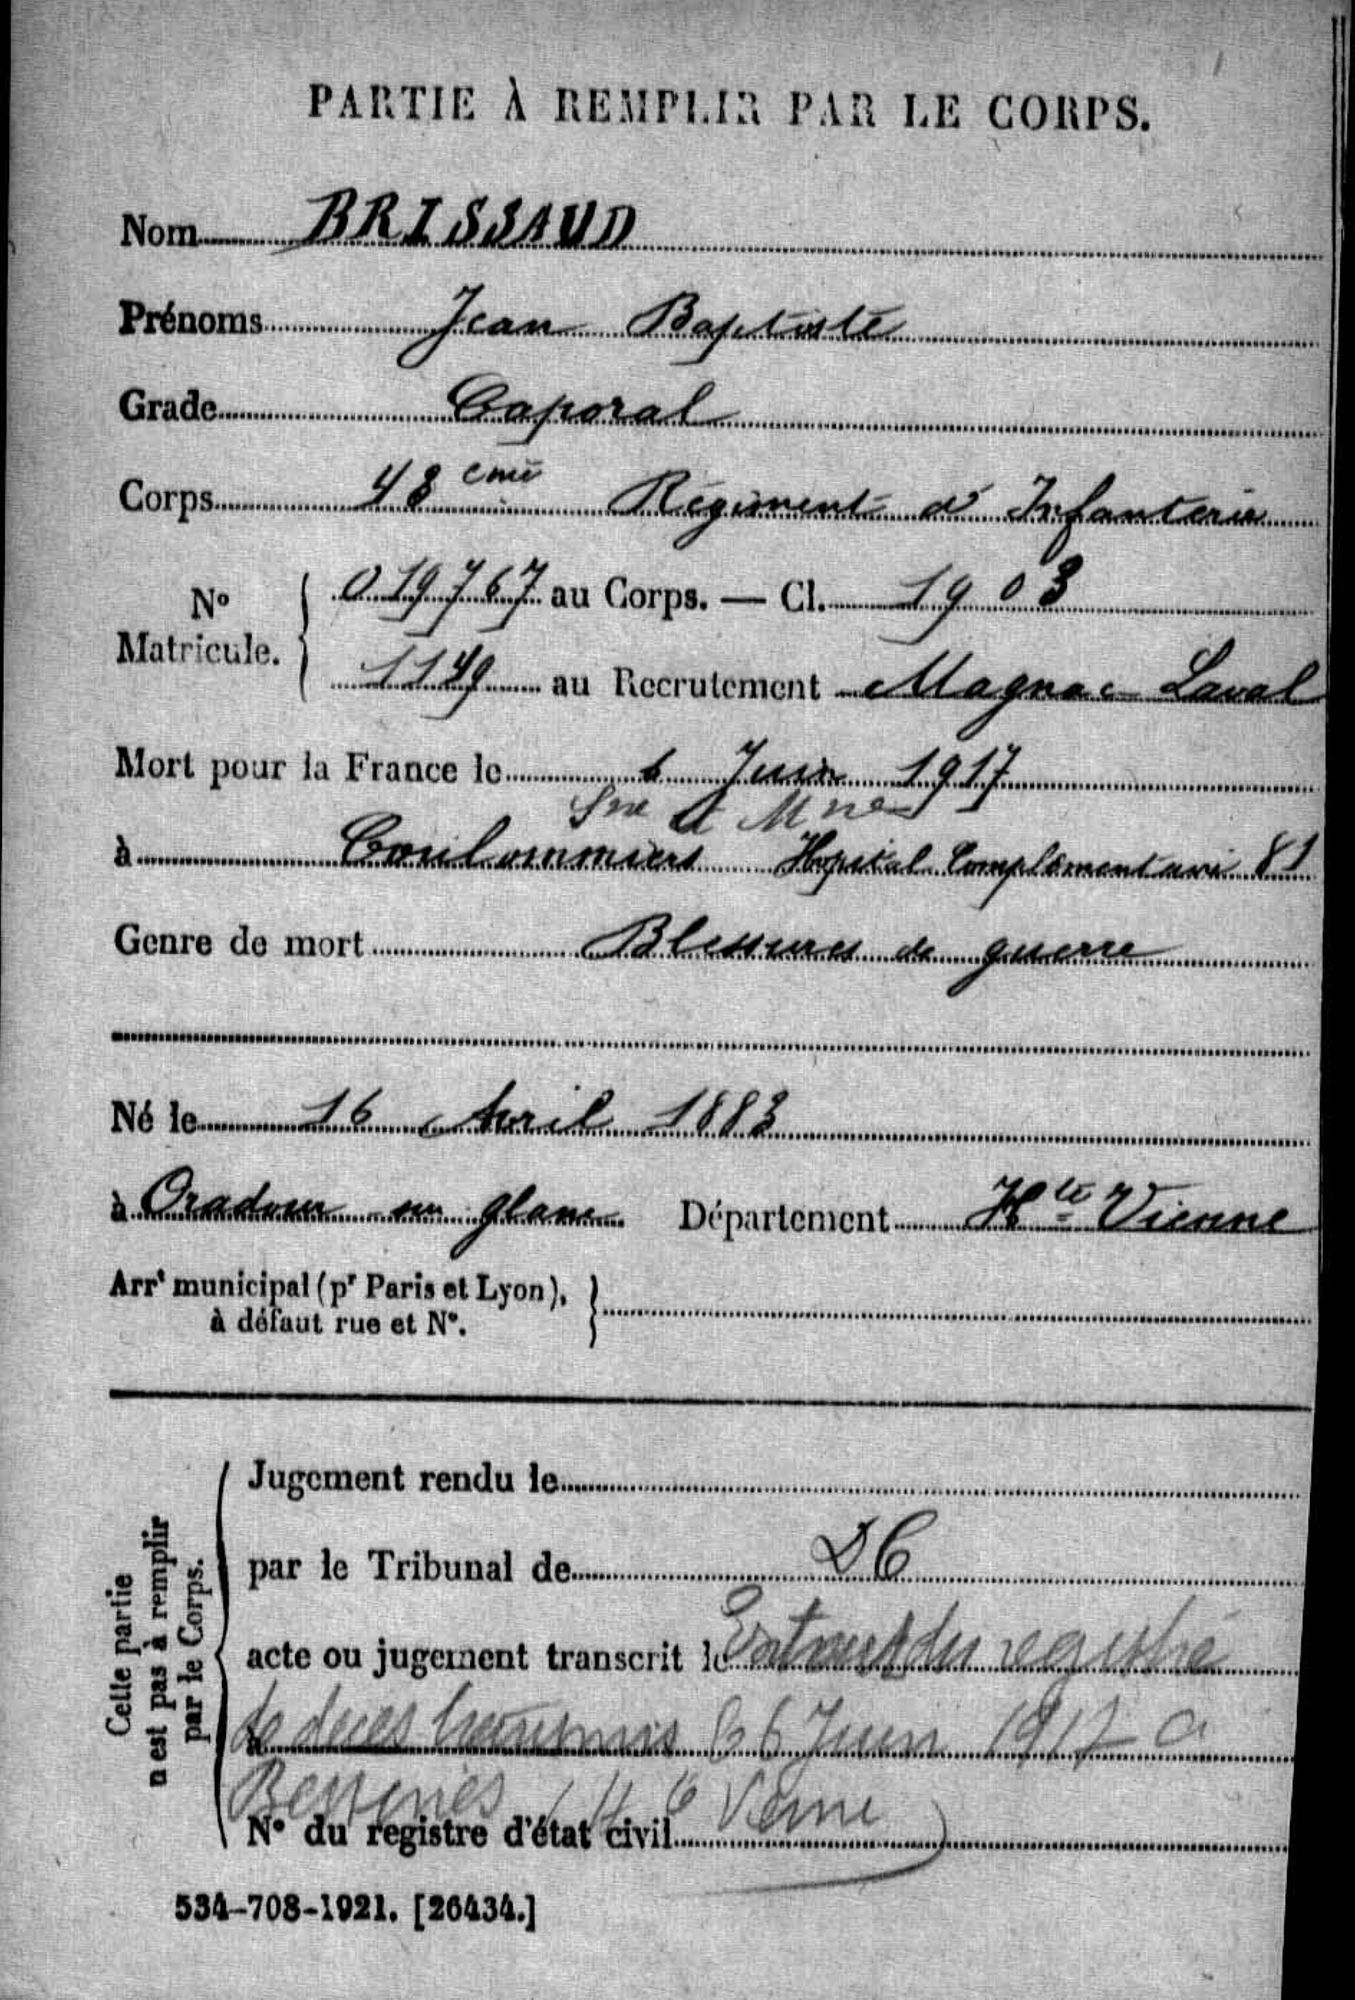 PARTIE À REMPLIR PAR LE CORPS.
Nom BRISSAUD
Prénoms Jean Baptiste
Grade Caporal
Corps 48 eme Régiment d' Infanterie
N° Matricule. 019767 au Corps. — Cl. 1903
1149 au Recrutement Magnac Laval
Mort pour la France le 6 Juin 1917
Sne et Mne
à Coulommiers Hopital Complémentaire 81
Genre de mort Blessures de guerre
Né le 16 Avril 1883
à Oradour sur glane Département Hte Vienne
Arrt municipal (pr Paris et Lyon),
à défaut rue et N°.
Cette partie
n'est pas à remplir
par le Corps.
Jugement rendu le
par le Tribunal de DC
acte ou jugement transcrit le Extrait du registre
à de deces le 6 Juin 1917 a
H te Vienne
N° du registre d'état civil
534-708-1921. [26434.]